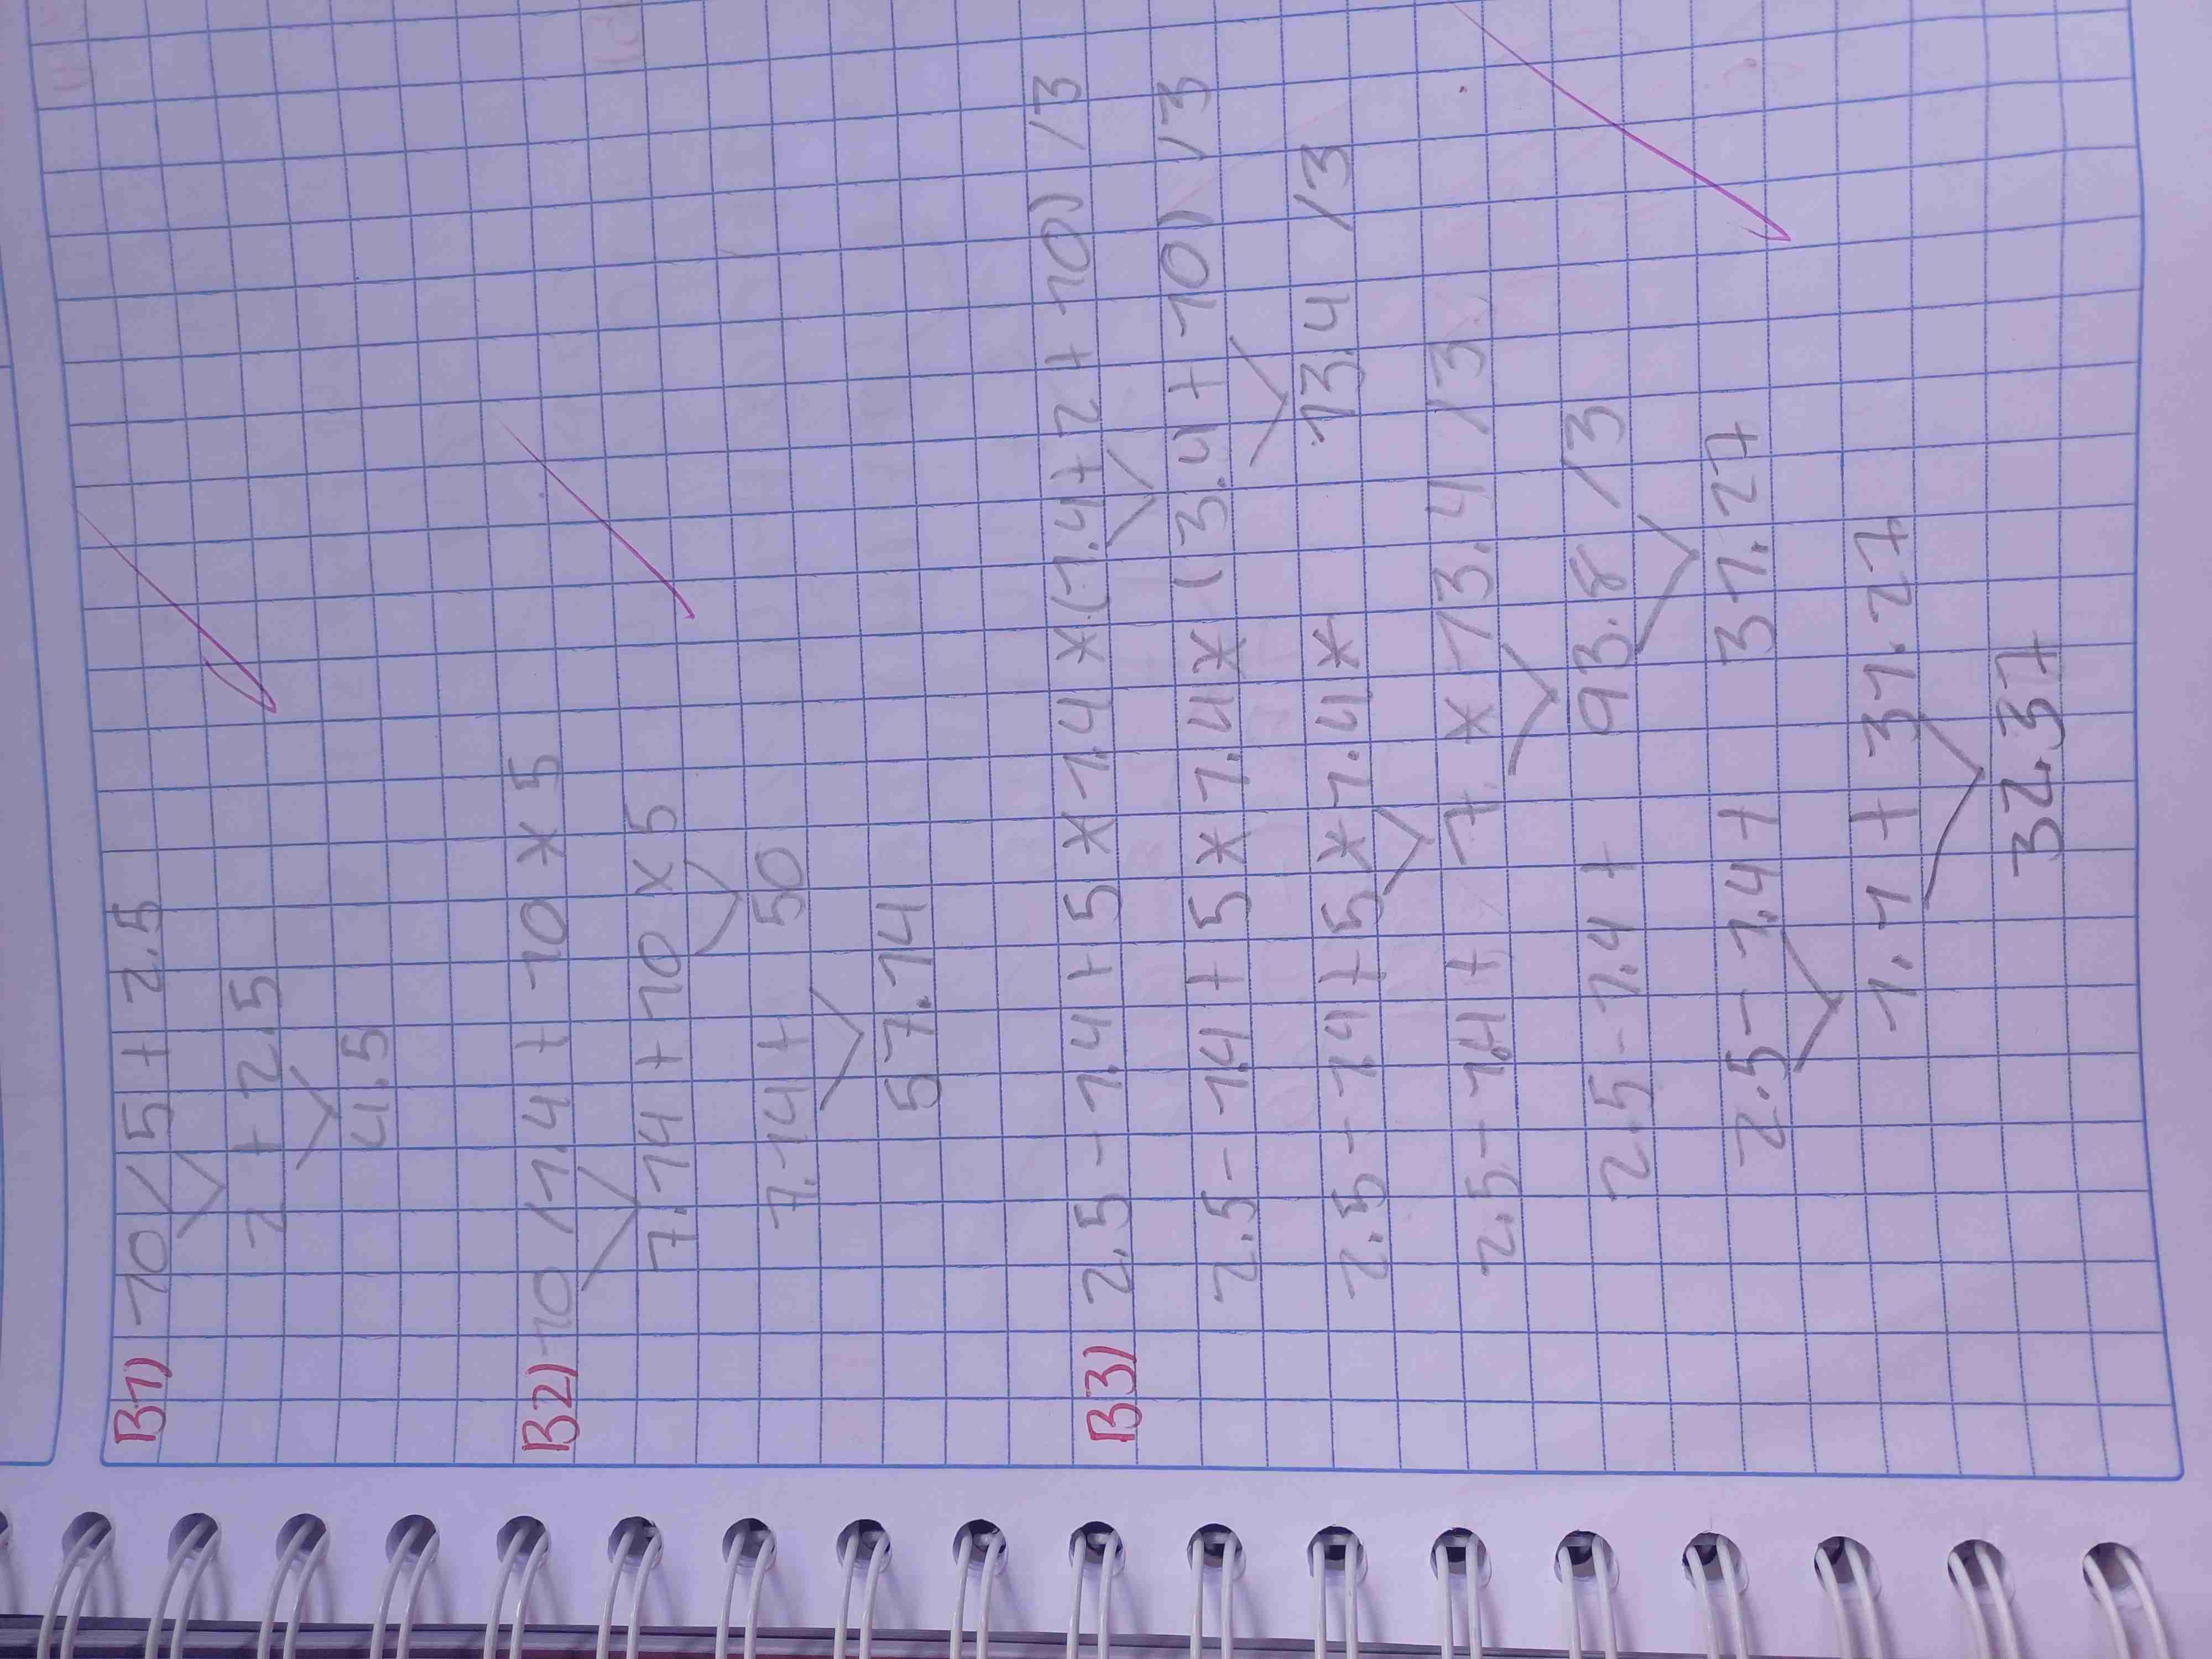 B1) 10/5 + 2.5
2 + 2.5
4.5
B2) 10/1.4 + 10 x 5
7.14 + 10 x 5
7.14 + 50
57.14
B3) 2.5 - 1.4 + 5 * 1.4 * (1.4 + 2 + 10) / 3
2.5 - 1.4 + 5 * 1.4 * (3.4 + 10) / 3
2.5 - 1.4 + 5 * 1.4 * 13.4 / 3
2.5 - 1.4 + 7 * 13.4 / 3
2.5 - 1.4 + 93.8 / 3
2.5 - 1.4 + 31.27
1.1 + 31.27
32.37